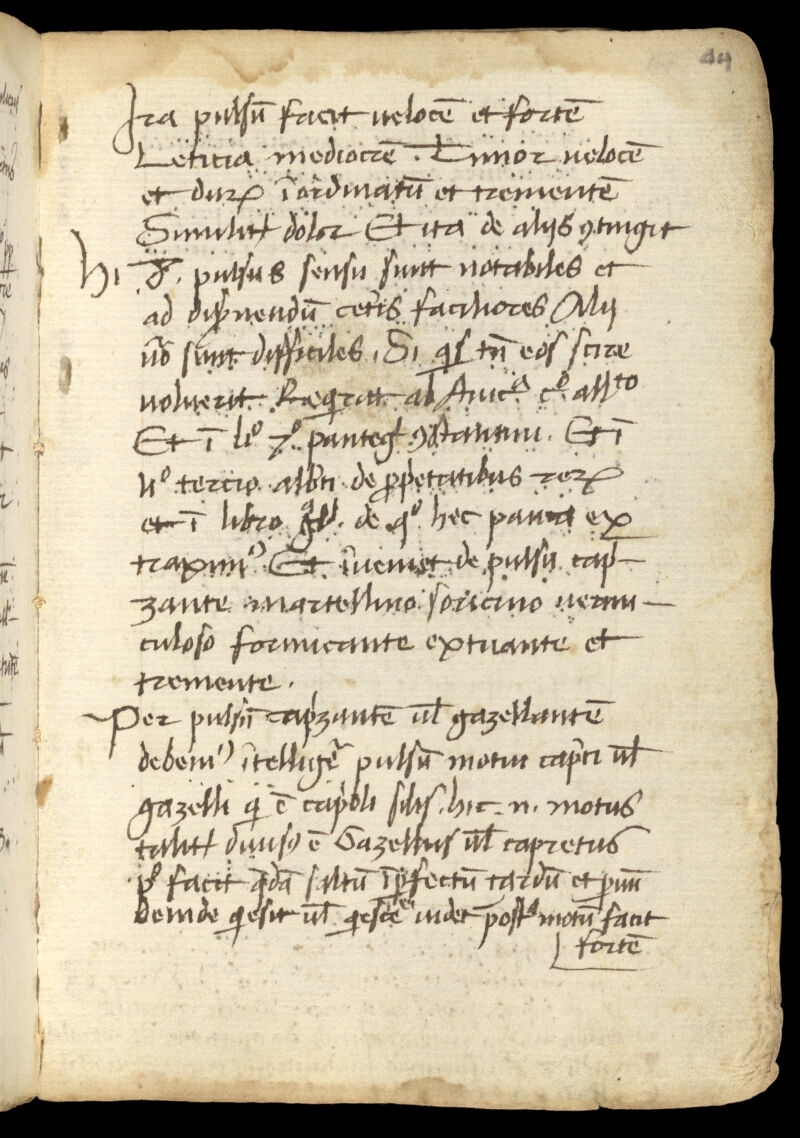 44
Ira pulsū facit velocē et fortē
Leticia mediocrē. Timor velocē
et durꝝ īordinatū et trementē
Similitꝭ dolor Et ita de aliis ꝯtingit
Hi pulsus sensu sunt notabiles et
ad discernendū ceteris faciliores Alij
ūo sunt difficiles. Si qͥs tn̄ eos scire
voluerit Reqͥrat ab Auicᵃ
Et ī liº pantegⁱ ꝯstantini. Et ī
liº tercio albti de ꝓpͥetatibus rerꝝ
et ī libro de qº hec pauca ex
traximꝰ Et īveniet de pulsu capͥ
zante martellino soricino vermi
culoso formicante extuante et
tremente.
Per pulsū capͥzantē ul̄ gazellantē
debemꝰ ītelligē pulsū motui capͥti ul̄
gazelli qͥ ē capͥoli sil̄is. hic .n. motus
talitꝭ diuisꝰ ē Gazellus ul̄ capretus
pº facit qͣdā saltū īꝑfectū tardū et ꝑuū
deinde qͥescit ul̄ qͥescere videt postᵃ motū facit
fortē